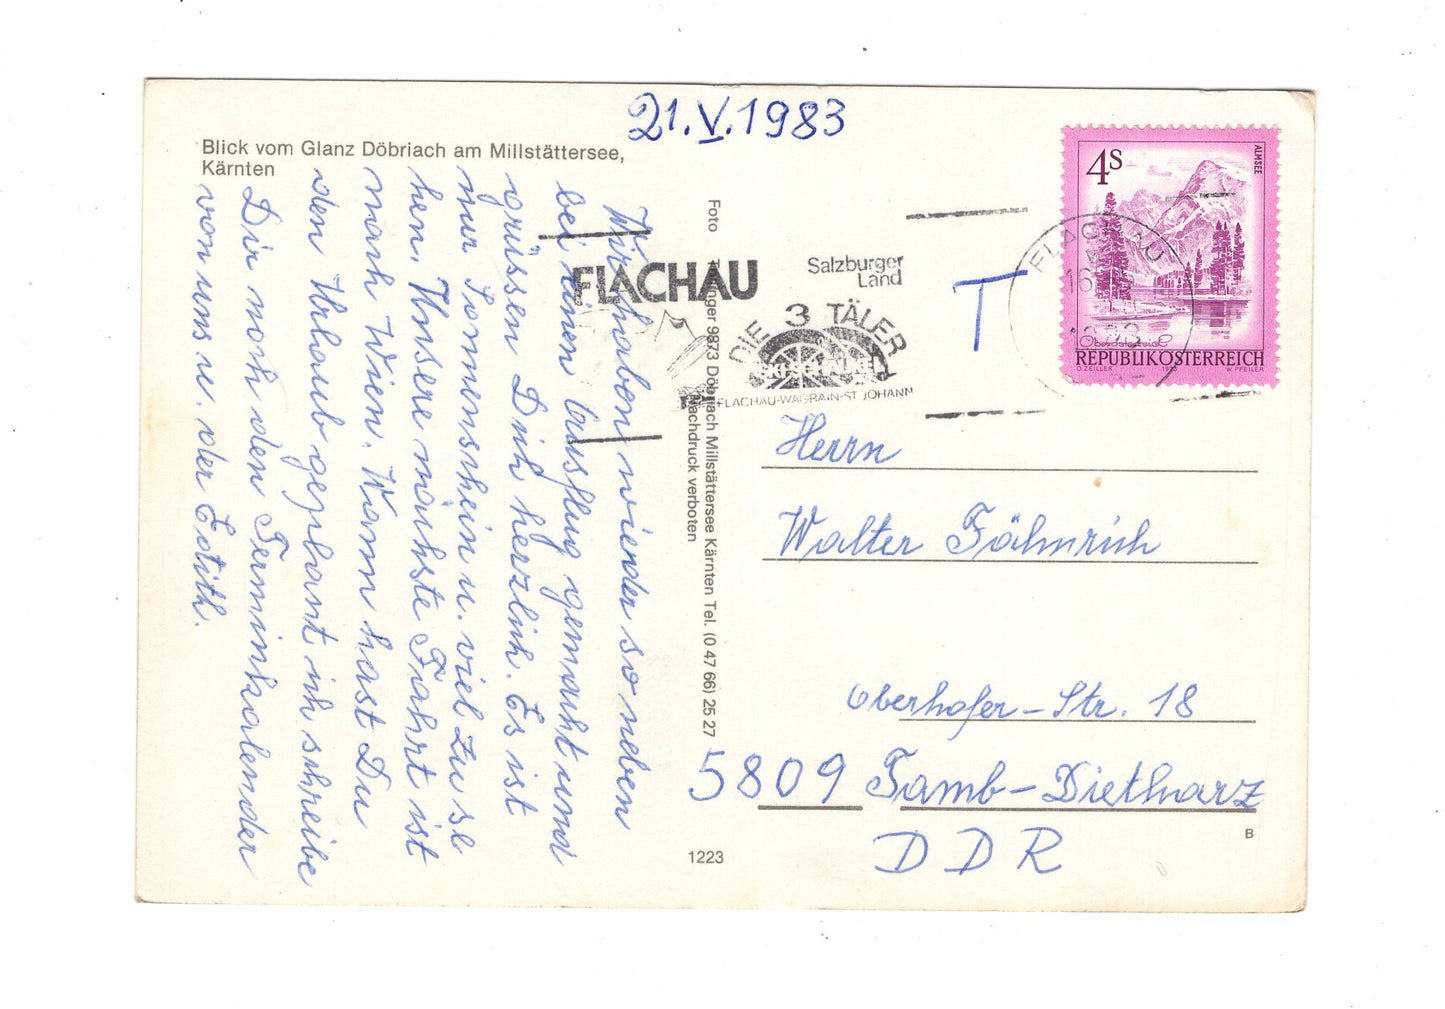 21.V.1983
Blick vom Glanz Döbriach am Millstättersee,
Kärnten
Wir haben wieder so neben
bei einen Ausflug gemacht und
grüssen Dich herzlich. Es ist
nur Sonnenschein u. viel zu se
hen. Unsere nächste Fahrt ist
nach Wien. Wann hast Du
den Urlaub geplant ich schreibe
Dir noch den Terminkalender
von uns u. der Edith.
Foto 9873 Döbriach Millstättersee Kärnten Tel. (0 47 66) 25 27
Nachdruck verboten
1223
FLACHAU
Salzburger
Land
DIE 3 TÄLER
SKISCHAUKEL
FLACHAU-WAGRAIN-ST. JOHANN
T
FLACHAU
4S
ALMSEE
Oberösterreich
REPUBLIK ÖSTERREICH
O. ZEILLER W. PFEILER
Herrn
Walter Fähnrich
Oberhofer-Str. 18
5809 Tamb-Dietharz
DDR
B